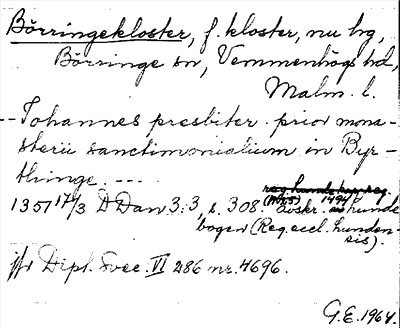 Börringekloster, f. kloster, nu hg,
Börringe sn, Vemmenhögs hd,
Malm. l.
--Johannes presbiter prior mona-
sterii sanctimonialium in Byr-
thinge. ---
1357 17/3 D Dan 3:3, s. 308. Avskr. 1494 hunde
bogen (Reg. eccl. Lunden-
sis).
jfr Dipl. Svec. VI 286 nr. 4696.
G.E. 1964.